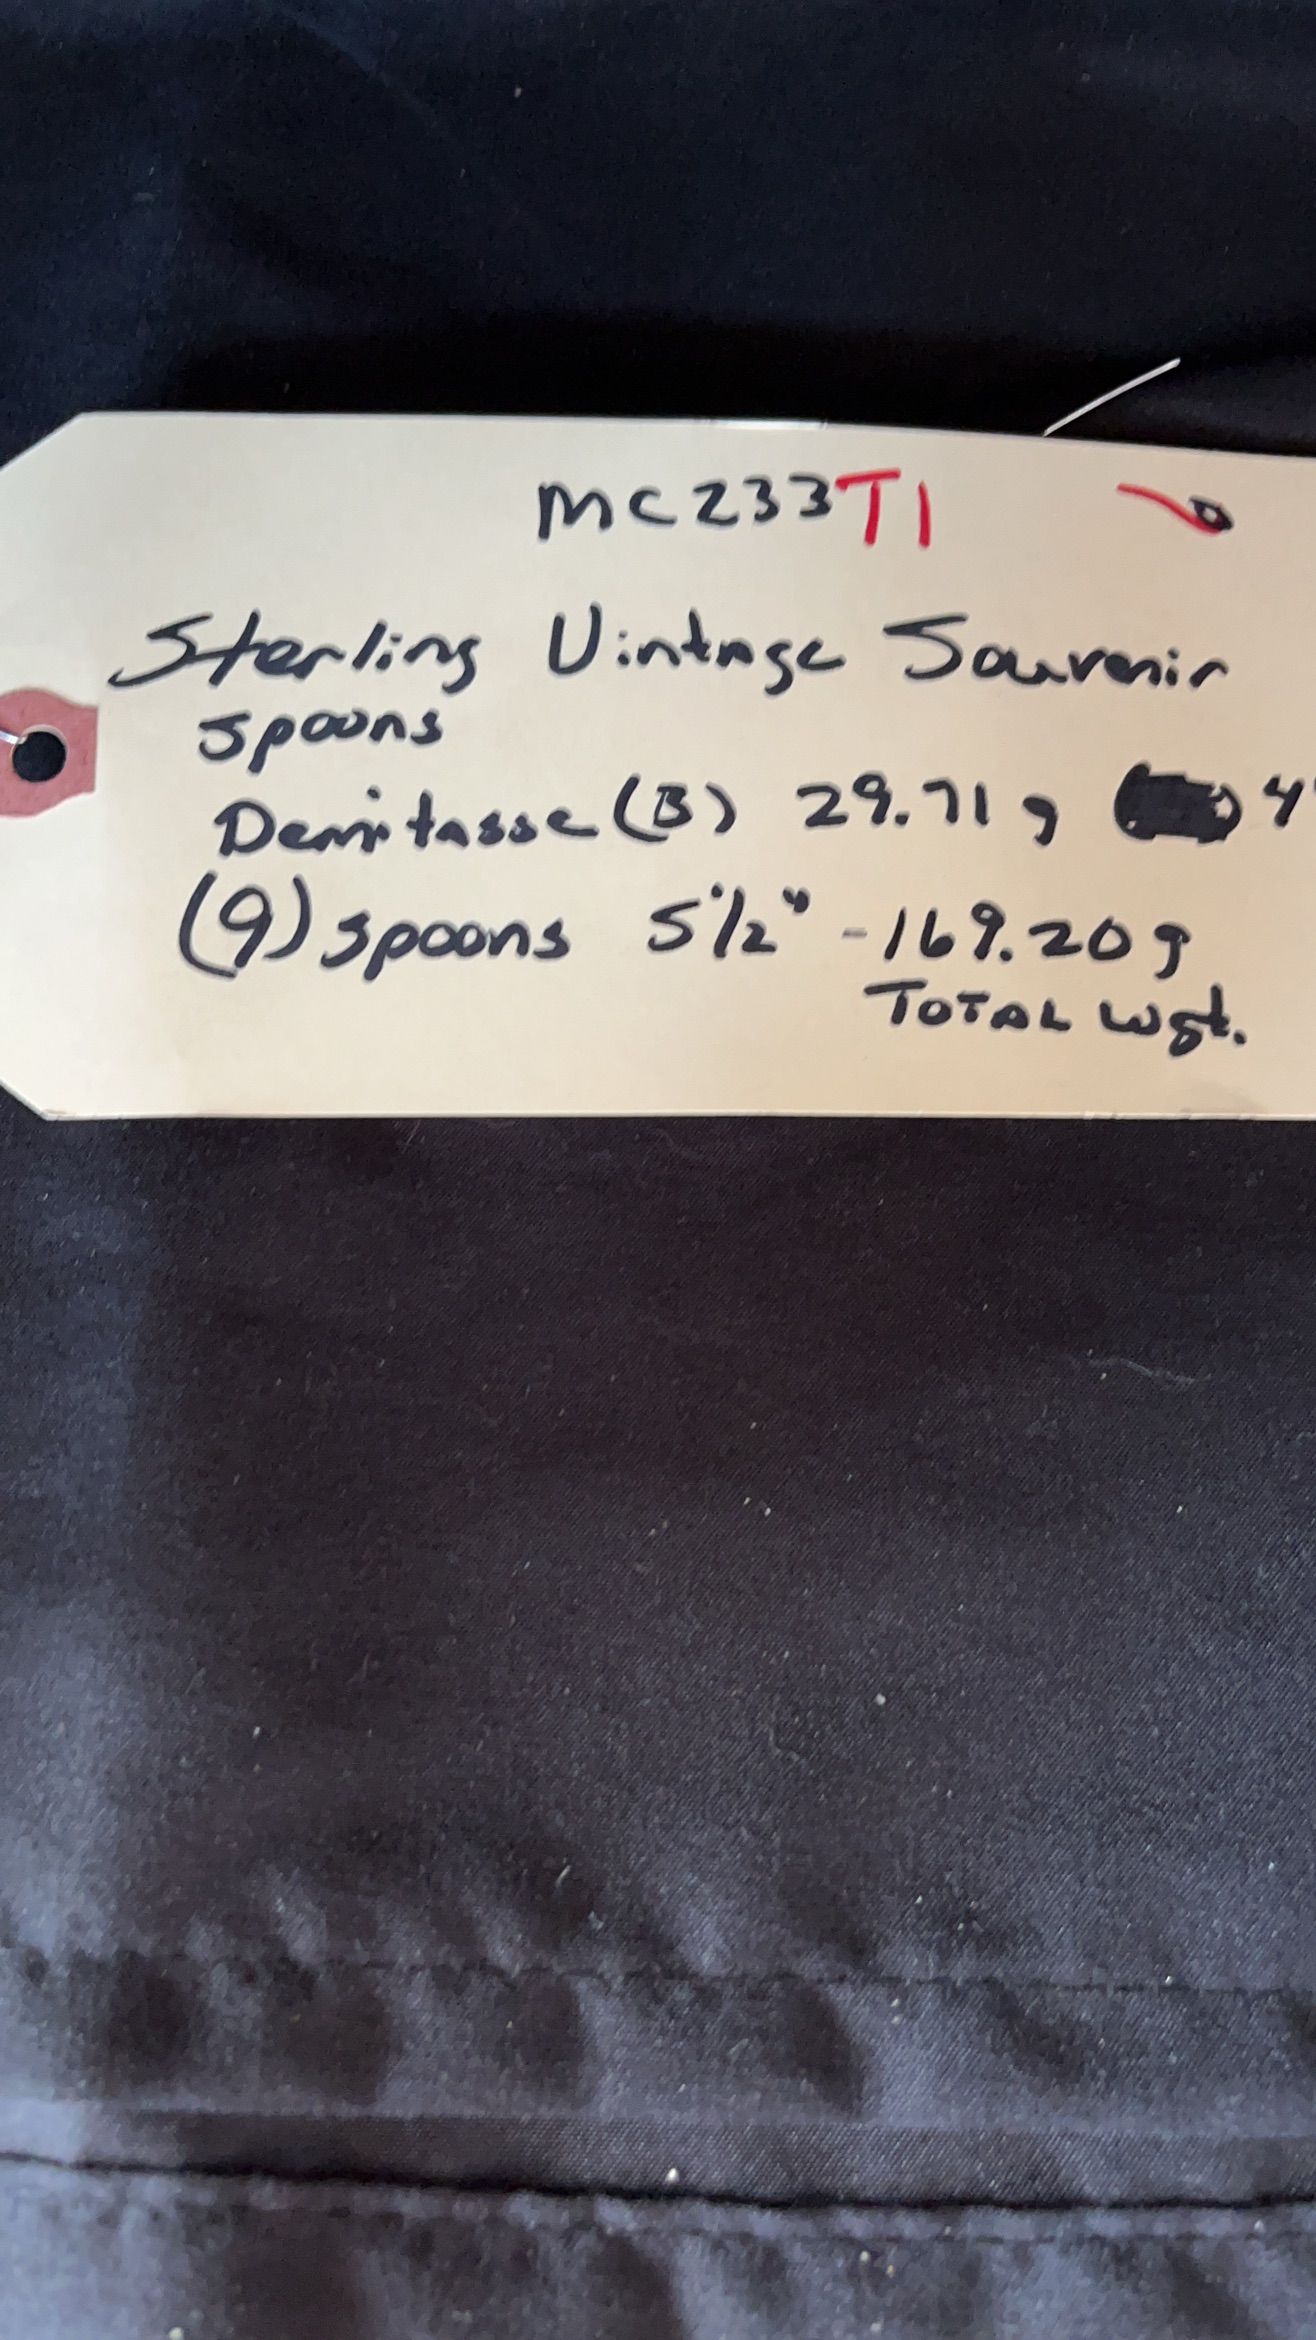 MC233T1
Sterling Vintage Souvenir
spoons
Demitasse (3) 29.71g 4"
(9) spoons 5 1/2" - 169.20g
TOTAL wgt.